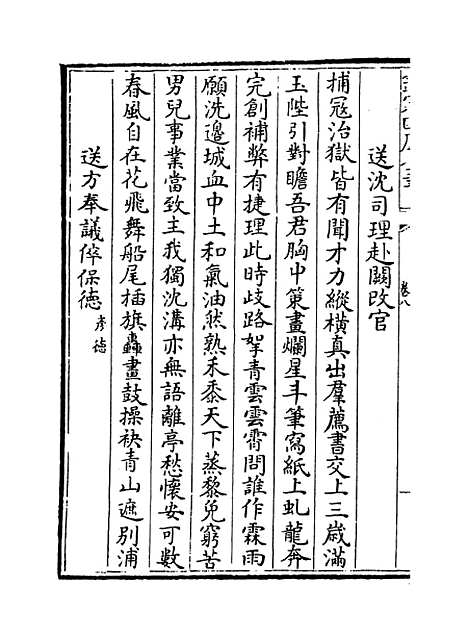 送沈司理赴闕改官
捕冦治獄皆有聞才力縱橫真出羣薦書交上三歳滿
玉陛引對瞻吾君胸中策畫爛星斗筆寫紙上虬龍奔
完創補弊有捷理此時歧路拏青雲雲霄問誰作霖雨
願洗邊城血中土和氣油然熟禾黍天下蒸黎免窮苦
男兒事業當致主我獨沈溝亦無語離亭愁懷安可數
春風自在花飛舞船尾插旗轟畫鼓操袂青山遮别浦
送方奉議倅保徳彦徳